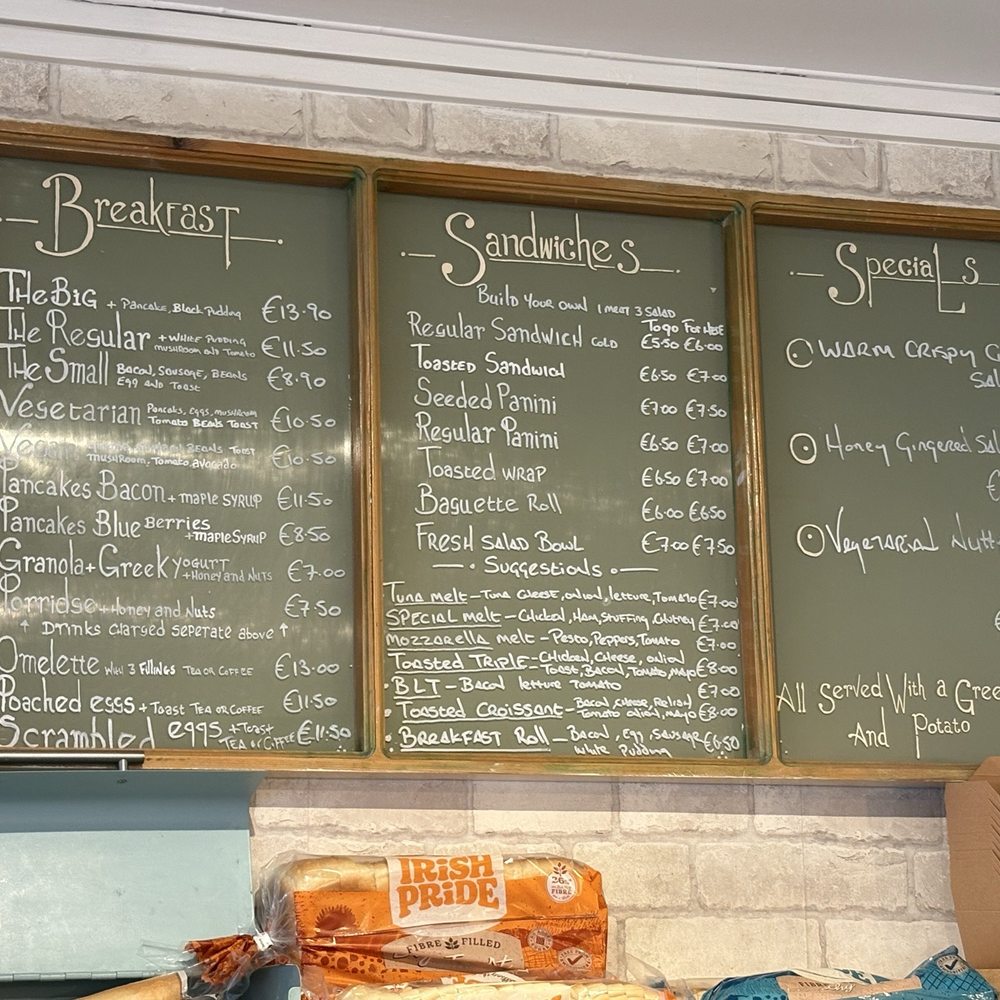 Breakfast
The Big + Pancake, Black Pudding €13.90
The Regular + White Pudding mushroom and Tomato €11.50
The Small Bacon, Sausage, Beans Egg and Toast €8.90
Vegetarian Pancake, Eggs, mushroom Tomato Beans Toast €10.50
Vegan Beans Toast mushroom, Tomato, avocado €10.50
Pancakes Bacon + maple syrup €11.50
Pancakes Blue Berries + maple syrup €8.50
Granola + Greek Yogurt + Honey and Nuts €7.00
Porridge + Honey and Nuts €7.50
↑ Drinks charged seperate above ↑
Omelette with 3 fillings Tea or Coffee €13.00
Poached eggs + Toast Tea or Coffee €11.50
Scrambled eggs + Toast Tea or Coffee €11.50
Sandwiches
Build Your Own 1 meat 3 Salad
To go For Here
Regular Sandwich cold €5.50 €6.00
Toasted Sandwich €6.50 €7.00
Seeded Panini €7.00 €7.50
Regular Panini €6.50 €7.00
Toasted wrap €6.50 €7.00
Baguette Roll €6.00 €6.50
Fresh Salad Bowl €7.00 €7.50
Suggestions
Tuna melt – Tuna Cheese, onion, letture, Tomato €7.00
Special melt – Chicken, Ham, Stuffing, Chutney €7.00
Mozzarella melt – Pesto, Peppers, Tomato €7.00
Toasted Triple – Chicken, Cheese, onion Toast, Bacon, Tomato, mayo €8.00
BLT – Bacon letture Tomato €7.00
Toasted Croissant – Bacon, Cheese, Relish Tomato onion, mayo €8.00
Breakfast Roll – Bacon, Egg, Sausage White Pudding €6.50
Specials
Warm Crispy
Honey Gingered
Vegetarian
All Served With a
And Potato
IRISH PRIDE
FIBRE FILLED